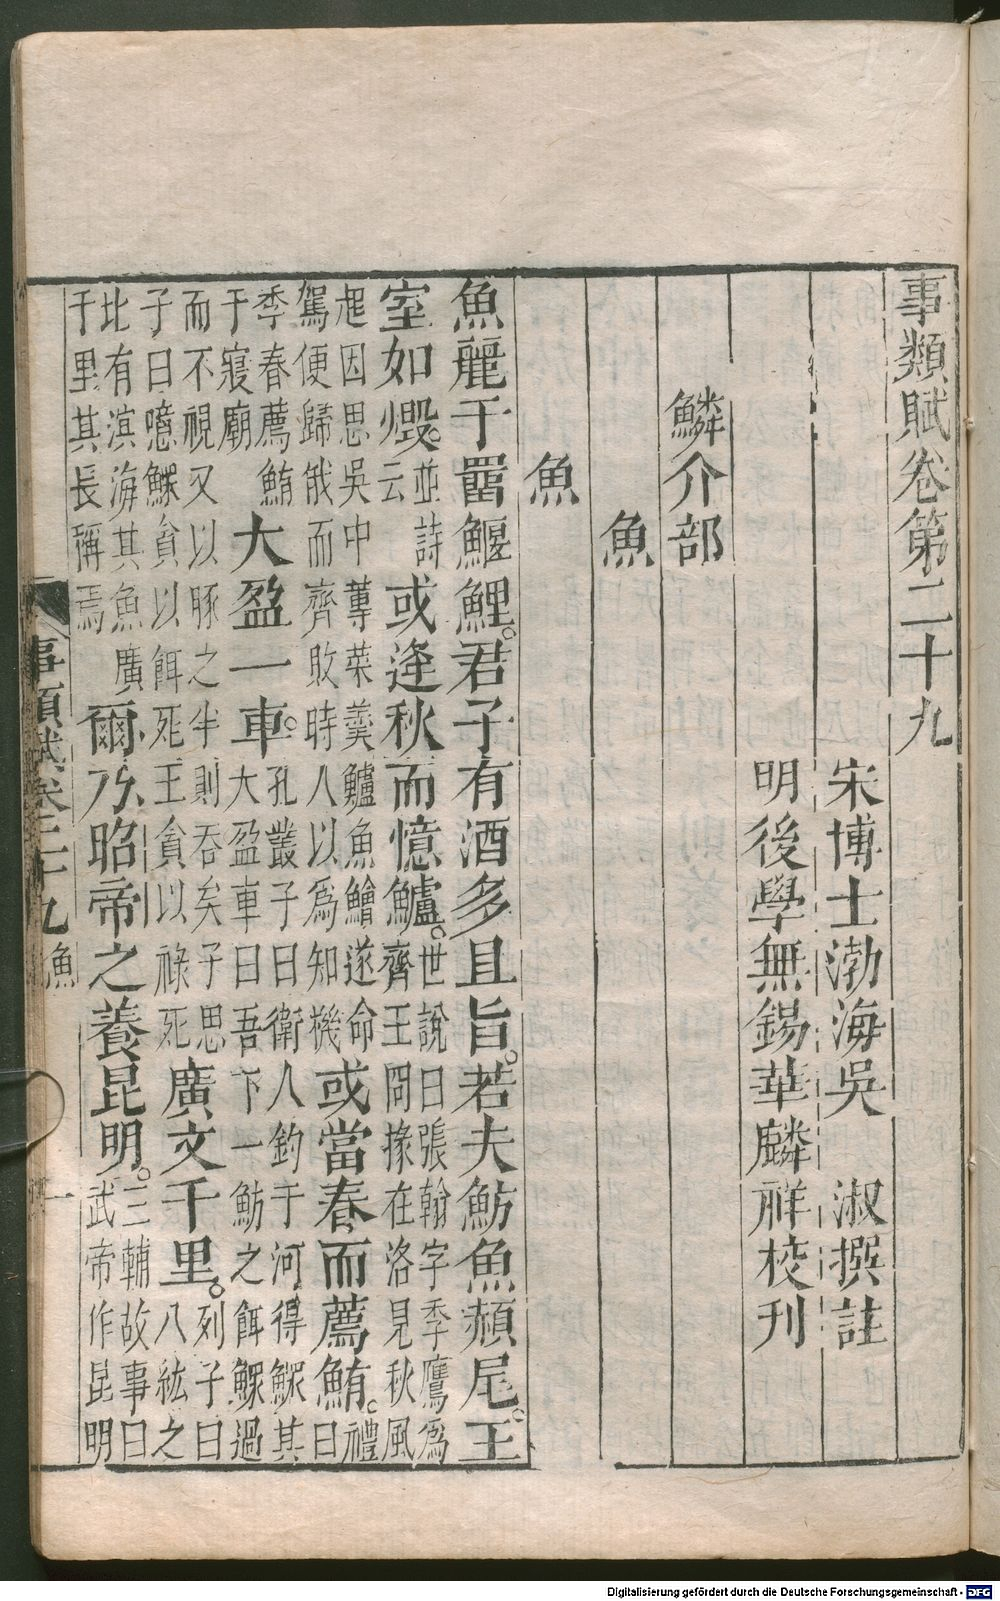 事類賦卷第二十九
宋博士渤海吳淑撰註
明後學無錫華麟祥校刊
鱗介部
魚
魚
魚麗于罶鰋鯉君子有酒多且旨若夫魴魚赬尾王
室如燬並詩云或逢秋而憶鱸世說曰張翰字季鷹爲齊王冏掾在洛見秋風
起因思吳中蓴菜羹鱸魚鱠遂命駕便歸俄而齊敗時人以爲知機或當春而薦鮪禮曰
季春薦鮪于寢廟大盈一車孔叢子曰衛人釣于河得鰥其大盈車曰吾下一魴之餌鰥過
而不視又以豚之半則吞矣子思子曰噫鰥貪以餌死王貪以祿死廣文千里列子曰八紘之
北有溟海其魚廣千里其長稱焉爾乃昭帝之養昆明三輔故事曰武帝作昆明
事類賦卷二十九 魚 一
Digitalisierung gefördert durch die Deutsche Forschungsgemeinschaft - DFG